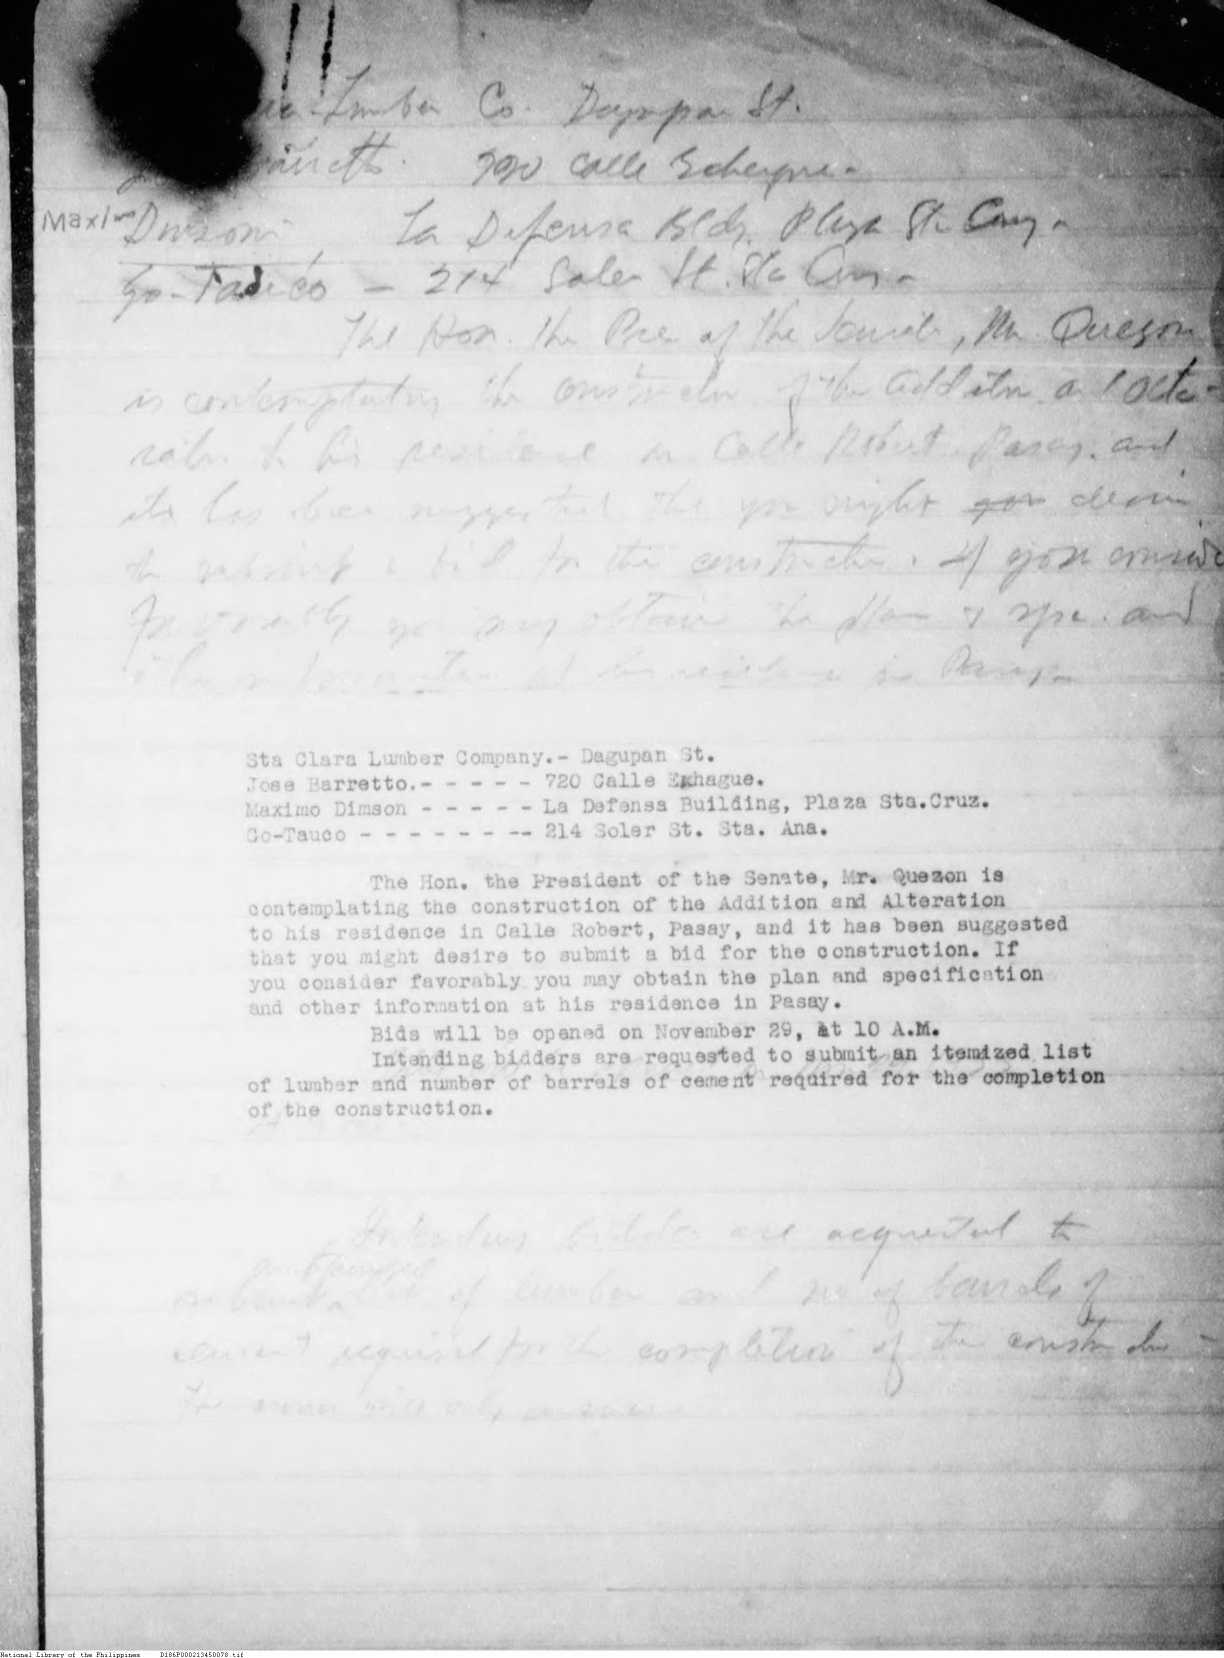 Lumber Co. Dagupan St.
Calle Echague -
Maximo
La Defensa Bldg. Plaza Sta Cruz -
Go-Tauco - 214 Soler St. Sta Cruz -
The Hon. the Pres of the Senate, Mr. Quezon
is contemplating the construction of the Addition and Alte-
ration to his residence in Calle Robert, Pasay, and
it has been suggested that you might desire
to submit a bid for the construction. If you consider
favorably you may obtain the plan & spec. and
other information at his residence in Pasay.
Sta Clara Lumber Company.- Dagupan St.
Jose Barretto.- - - - - - 720 Calle Exhague.
Maximo Dimson - - - - - La Defensa Building, Plaza Sta.Cruz.
Go-Tauco - - - - - - - -- 214 Soler St. Sta. Ana.
The Hon. the President of the Senate, Mr. Quezon is
contemplating the construction of the Addition and Alteration
to his residence in Calle Robert, Pasay, and it has been suggested
that you might desire to submit a bid for the construction. If
you consider favorably you may obtain the plan and specification
and other information at his residence in Pasay.
Bids will be opened on November 29, at 10 A.M.
Intending bidders are requested to submit an itemized list
of lumber and number of barrels of cement required for the completion
of the construction.
Intending bidders are requested to
an itemized
submit list of lumber and no of barrels of
cement required for the completion of the construction -
National Library of the Philippines D186P000213450078.tif